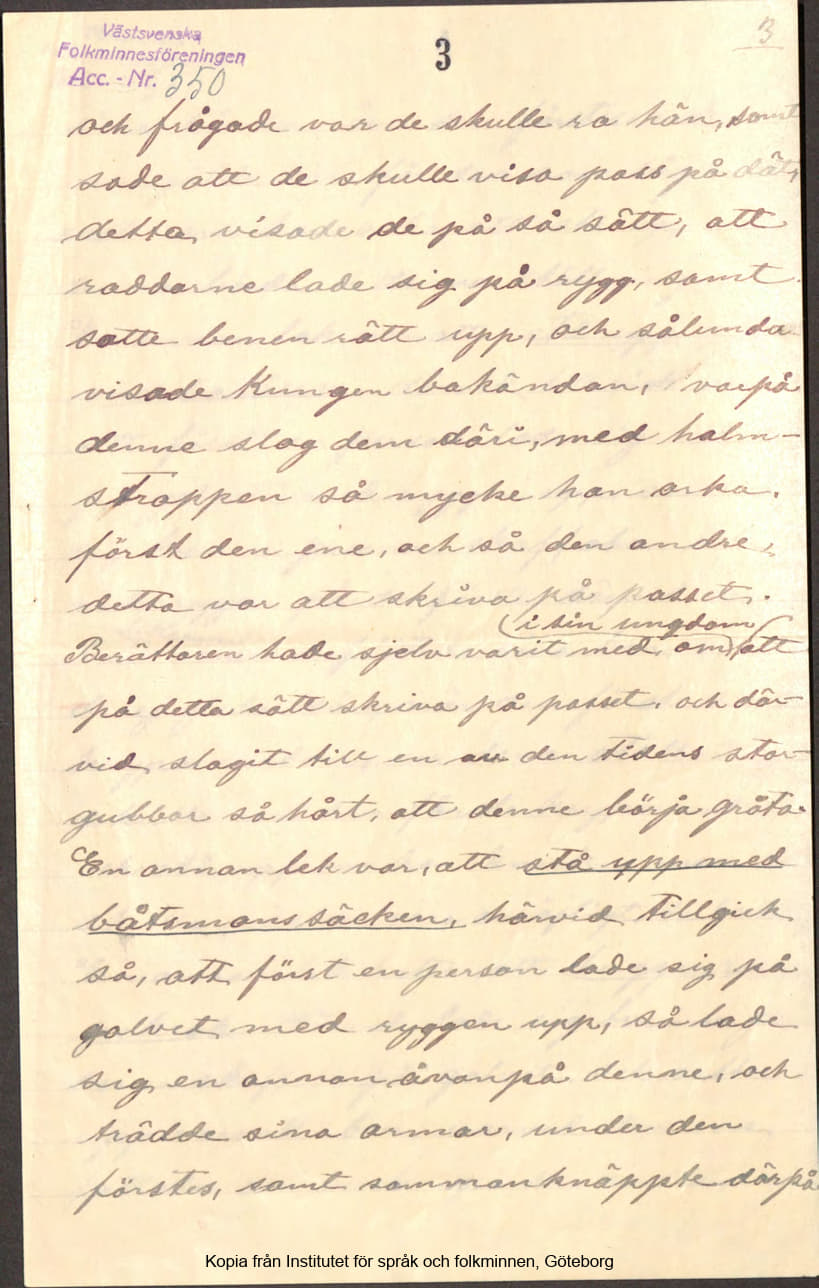 Västsvenska
Folkminnesföreningen
Acc. - Nr. 350
3
3
och frågade var de skulle ra hän, samt
sade att de skulle visa pass på dät,
detta visade de på så sätt, att
raddarne lade sig på rygg, samt
satte benen rätt upp, och sålunda
visade Kungen bakändan, varpå
denne slog dem däri, med halm-
strappen så mycke han orka.
först den ene, och så den andre,
detta var att skriva på passet.
(i sin ungdom)
Berättaren hade sjelv varit med om att
på detta sätt skriva på passet. och där-
vid slagit till en av den tidens stor-
gubbar så hårt, att denne börja gråta.
En annan lek var, att stå upp med
båtsmanssäcken, härvid tillgick
så, att först en person lade sig på
golvet med ryggen upp, så lade
sig en annan ävanpå denne, och
trädde sina armar, under den
förstes, samt sammanknäppte därpå
Kopia från Institutet för språk och folkminnen, Göteborg